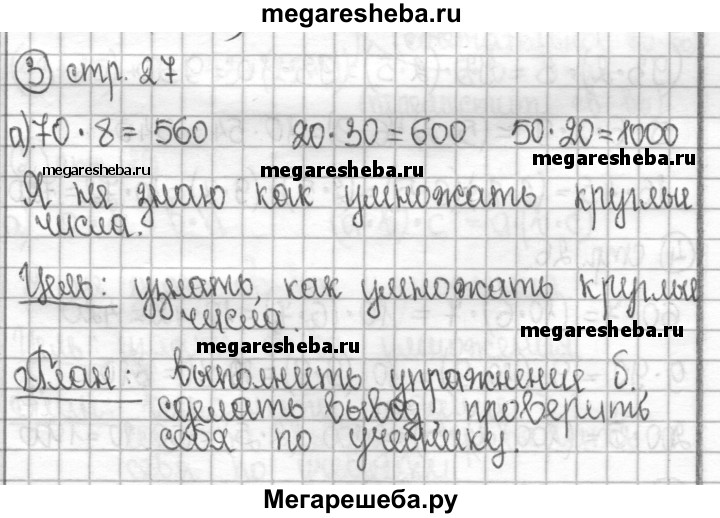 megaresheba.ru
③ стр. 27
а) 70 · 8 = 560 20 · 30 = 600 50 · 20 = 1000
megaresheba.ru megaresheba.ru megaresheba.ru
Я не знаю как умножать круглые
числа.
Цель: узнать, как умножать круглые
числа.
megaresheba.ru megaresheba.ru
План: выполнить упражнение б.
сделать вывод проверить
себя по учебнику.
Мегарешеба.ру